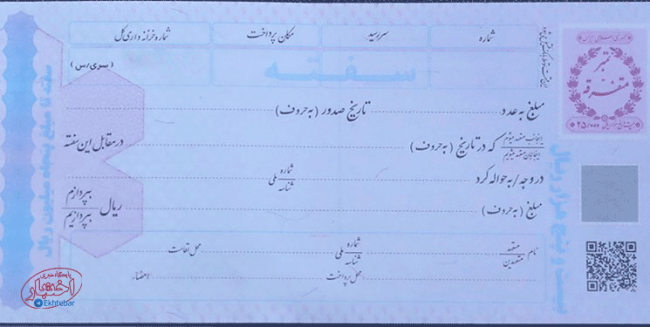 شماره
سررسید
مکان پرداخت
شماره خزانه داری کل
سفته
(سری/س)
جمهوری اسلامی ایران
تمبر
متفرقه
۲۵/۰۰۰
مبلغ به عدد
تاریخ صدور (به حروف)
اینجانب متعهد میشوم
اینجانبان متعهد میشویم
که در تاریخ (به حروف)
در مقابل این سفته
در وجه / به حواله کرد
شماره ملی
شناسه ملی
مبلغ (به حروف)
ریال
بپردازم
بپردازیم
نام متعهد
متعهدین
شماره ملی
شناسه ملی
محل اقامت
محل پرداخت
امضاء
سفته تا مبلغ پنجاه میلیون ریال
بیست و پنج هزار ریال
پایگاه خبری
اختبار
Ekhtebar